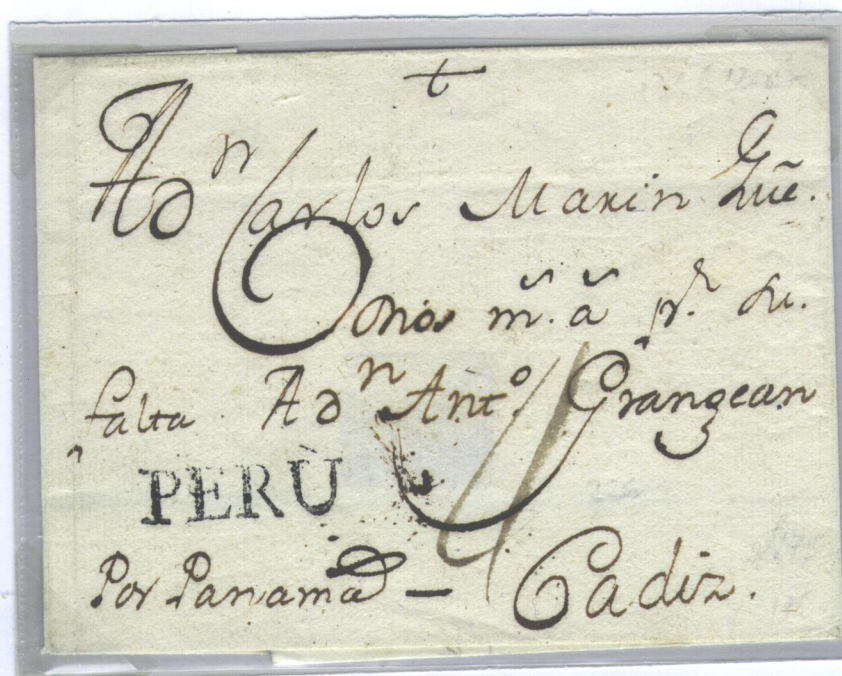 +
A dn Carlos Marin Gue.
ms. as. pr. su.
falta. A dn Anto. Grangean
PERÙ
Por Panamá — Cadiz.